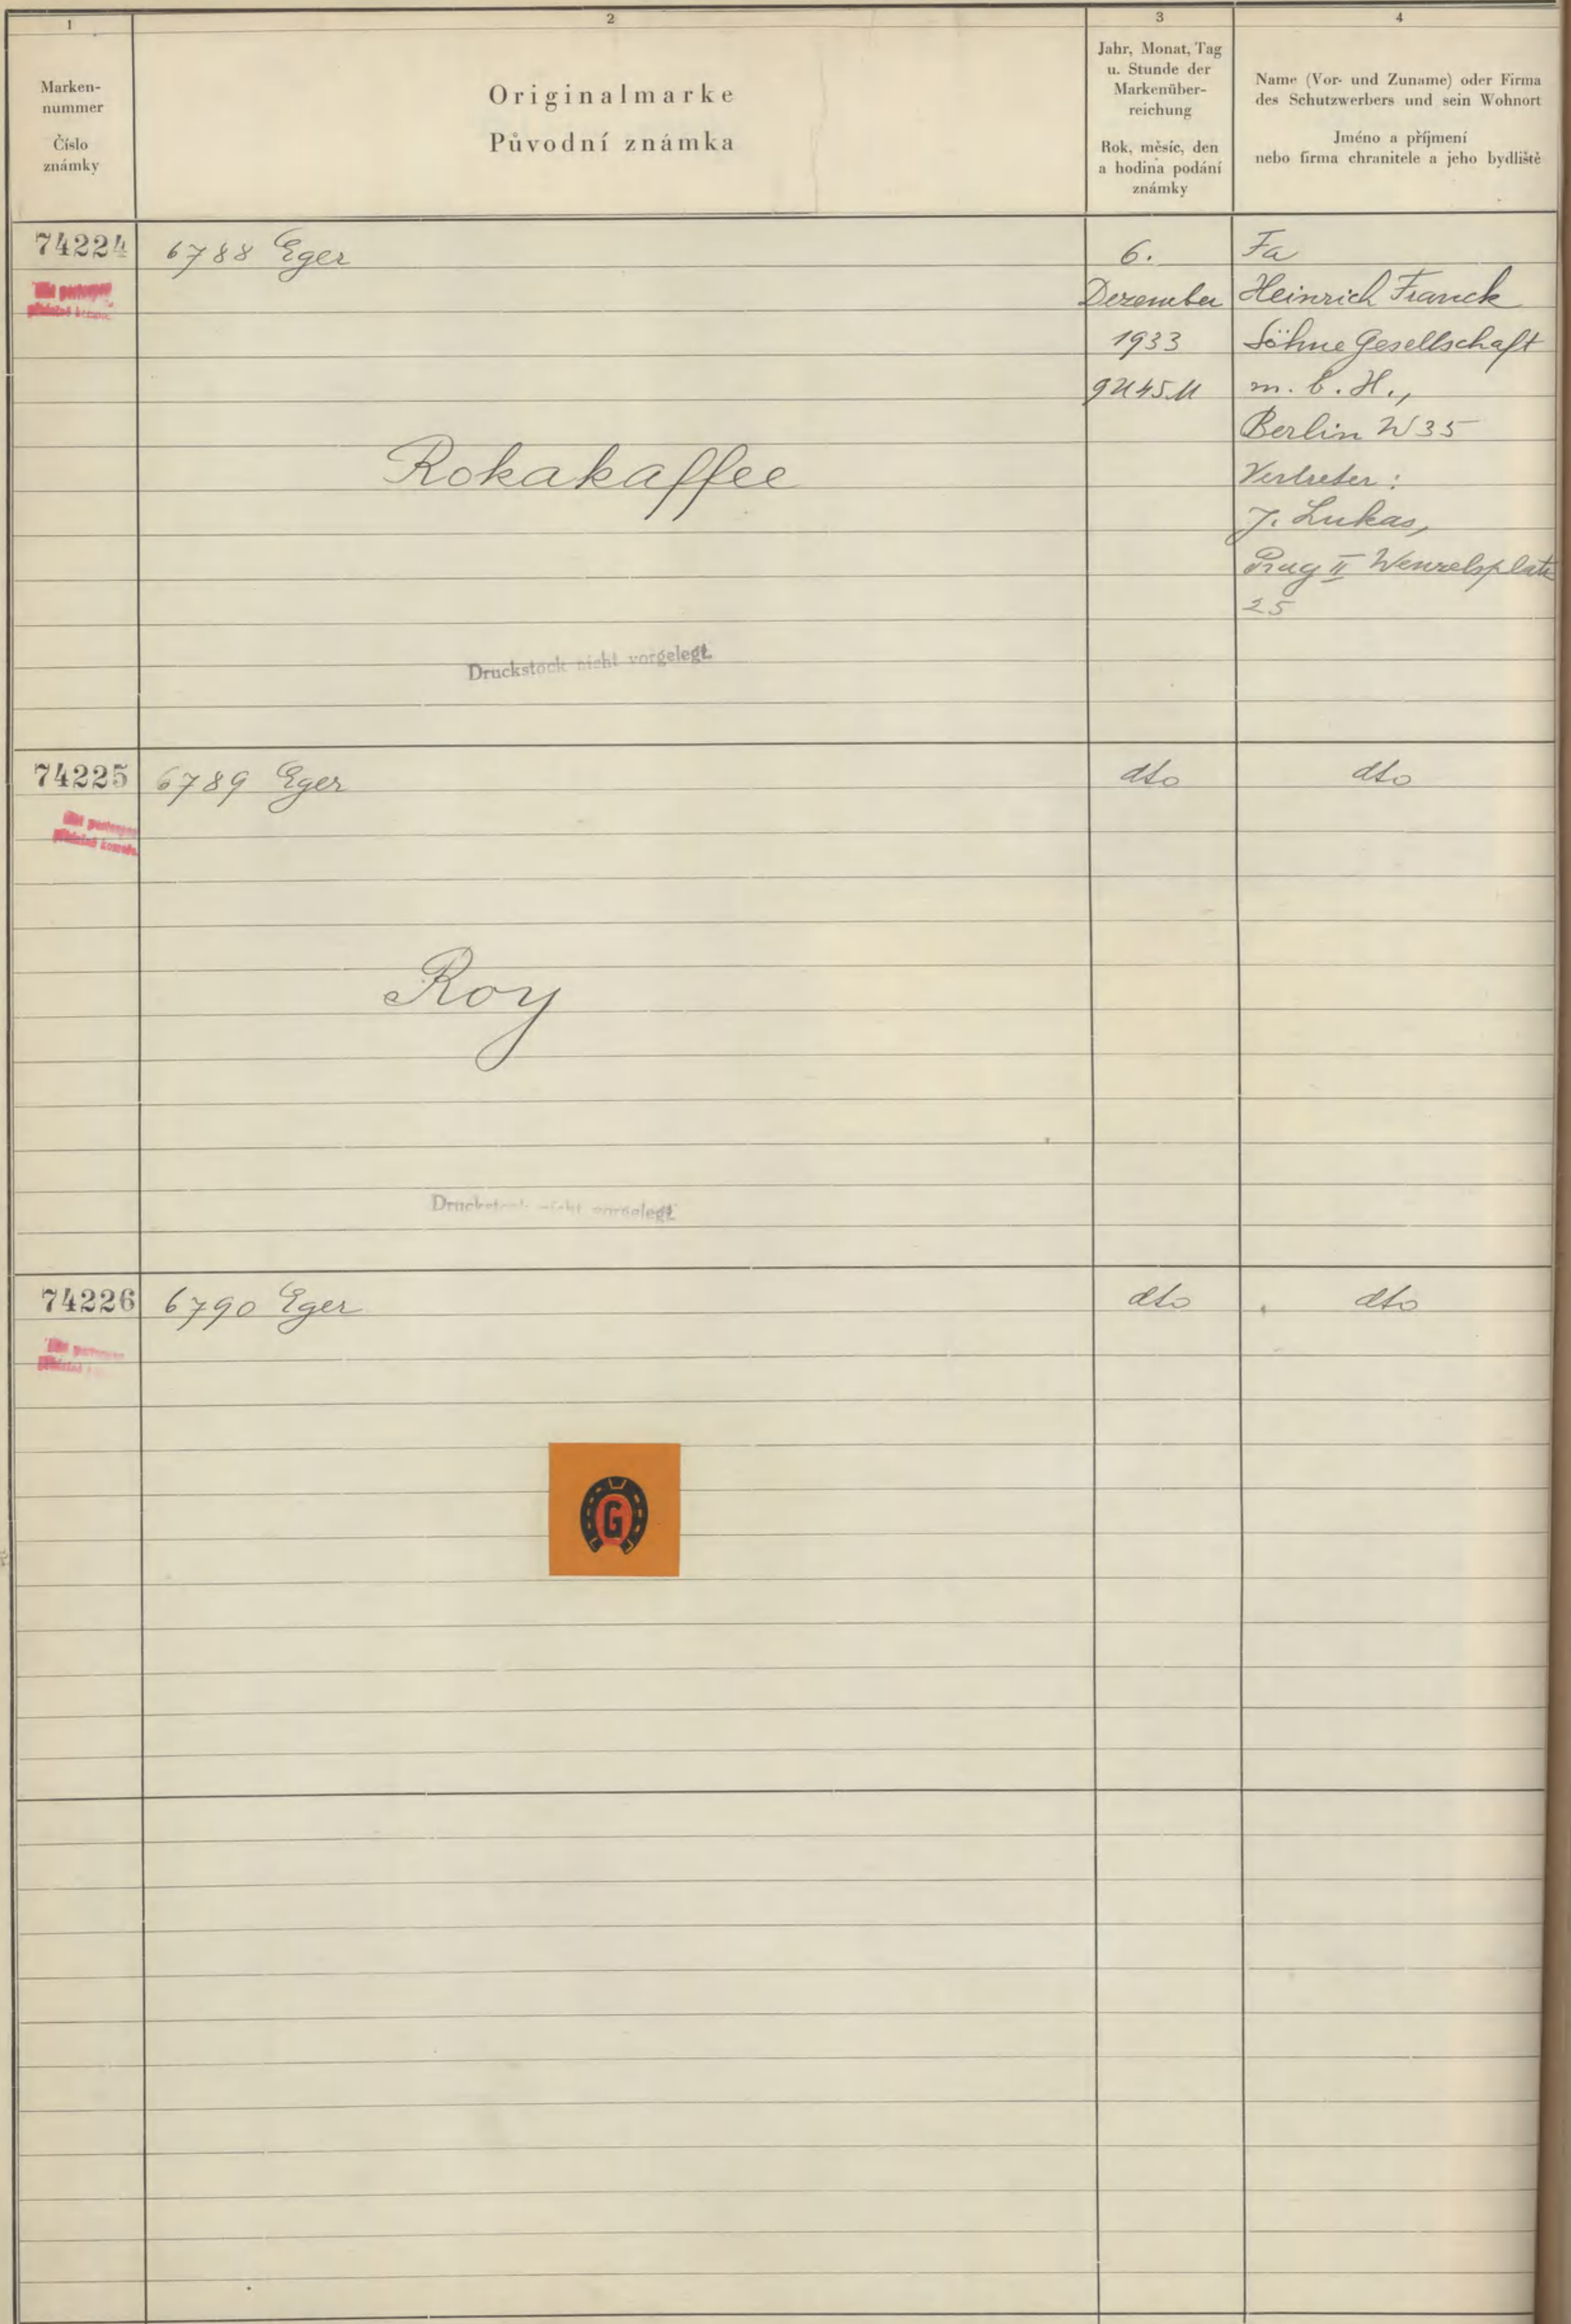 1
2
3
4
Marken-
nummer
Číslo
známky
Originalmarke
Původní známka
Jahr, Monat, Tag
u. Stunde der
Markenüber-
reichung
Rok, měsíc, den
a hodina podání
známky
Name (Vor- und Zuname) oder Firma
des Schutzwerbers und sein Wohnort
Jméno a příjmení
nebo firma chranitele a jeho bydliště
74224
6788 Eger
Rokakaffee
Druckstock nicht vorgelegt.
6.
Dezember
1933
9U45M
Fa
Heinrich Franck
Söhne Gesellschaft
m. b. H.,
Berlin W35
Vertreter:
J. Lukas,
Prag II Wenzelsplatz
25
74225
6789 Eger
Roy
Druckstock nicht vorgelegt.
dto
dto
74226
6790 Eger
G
dto
dto